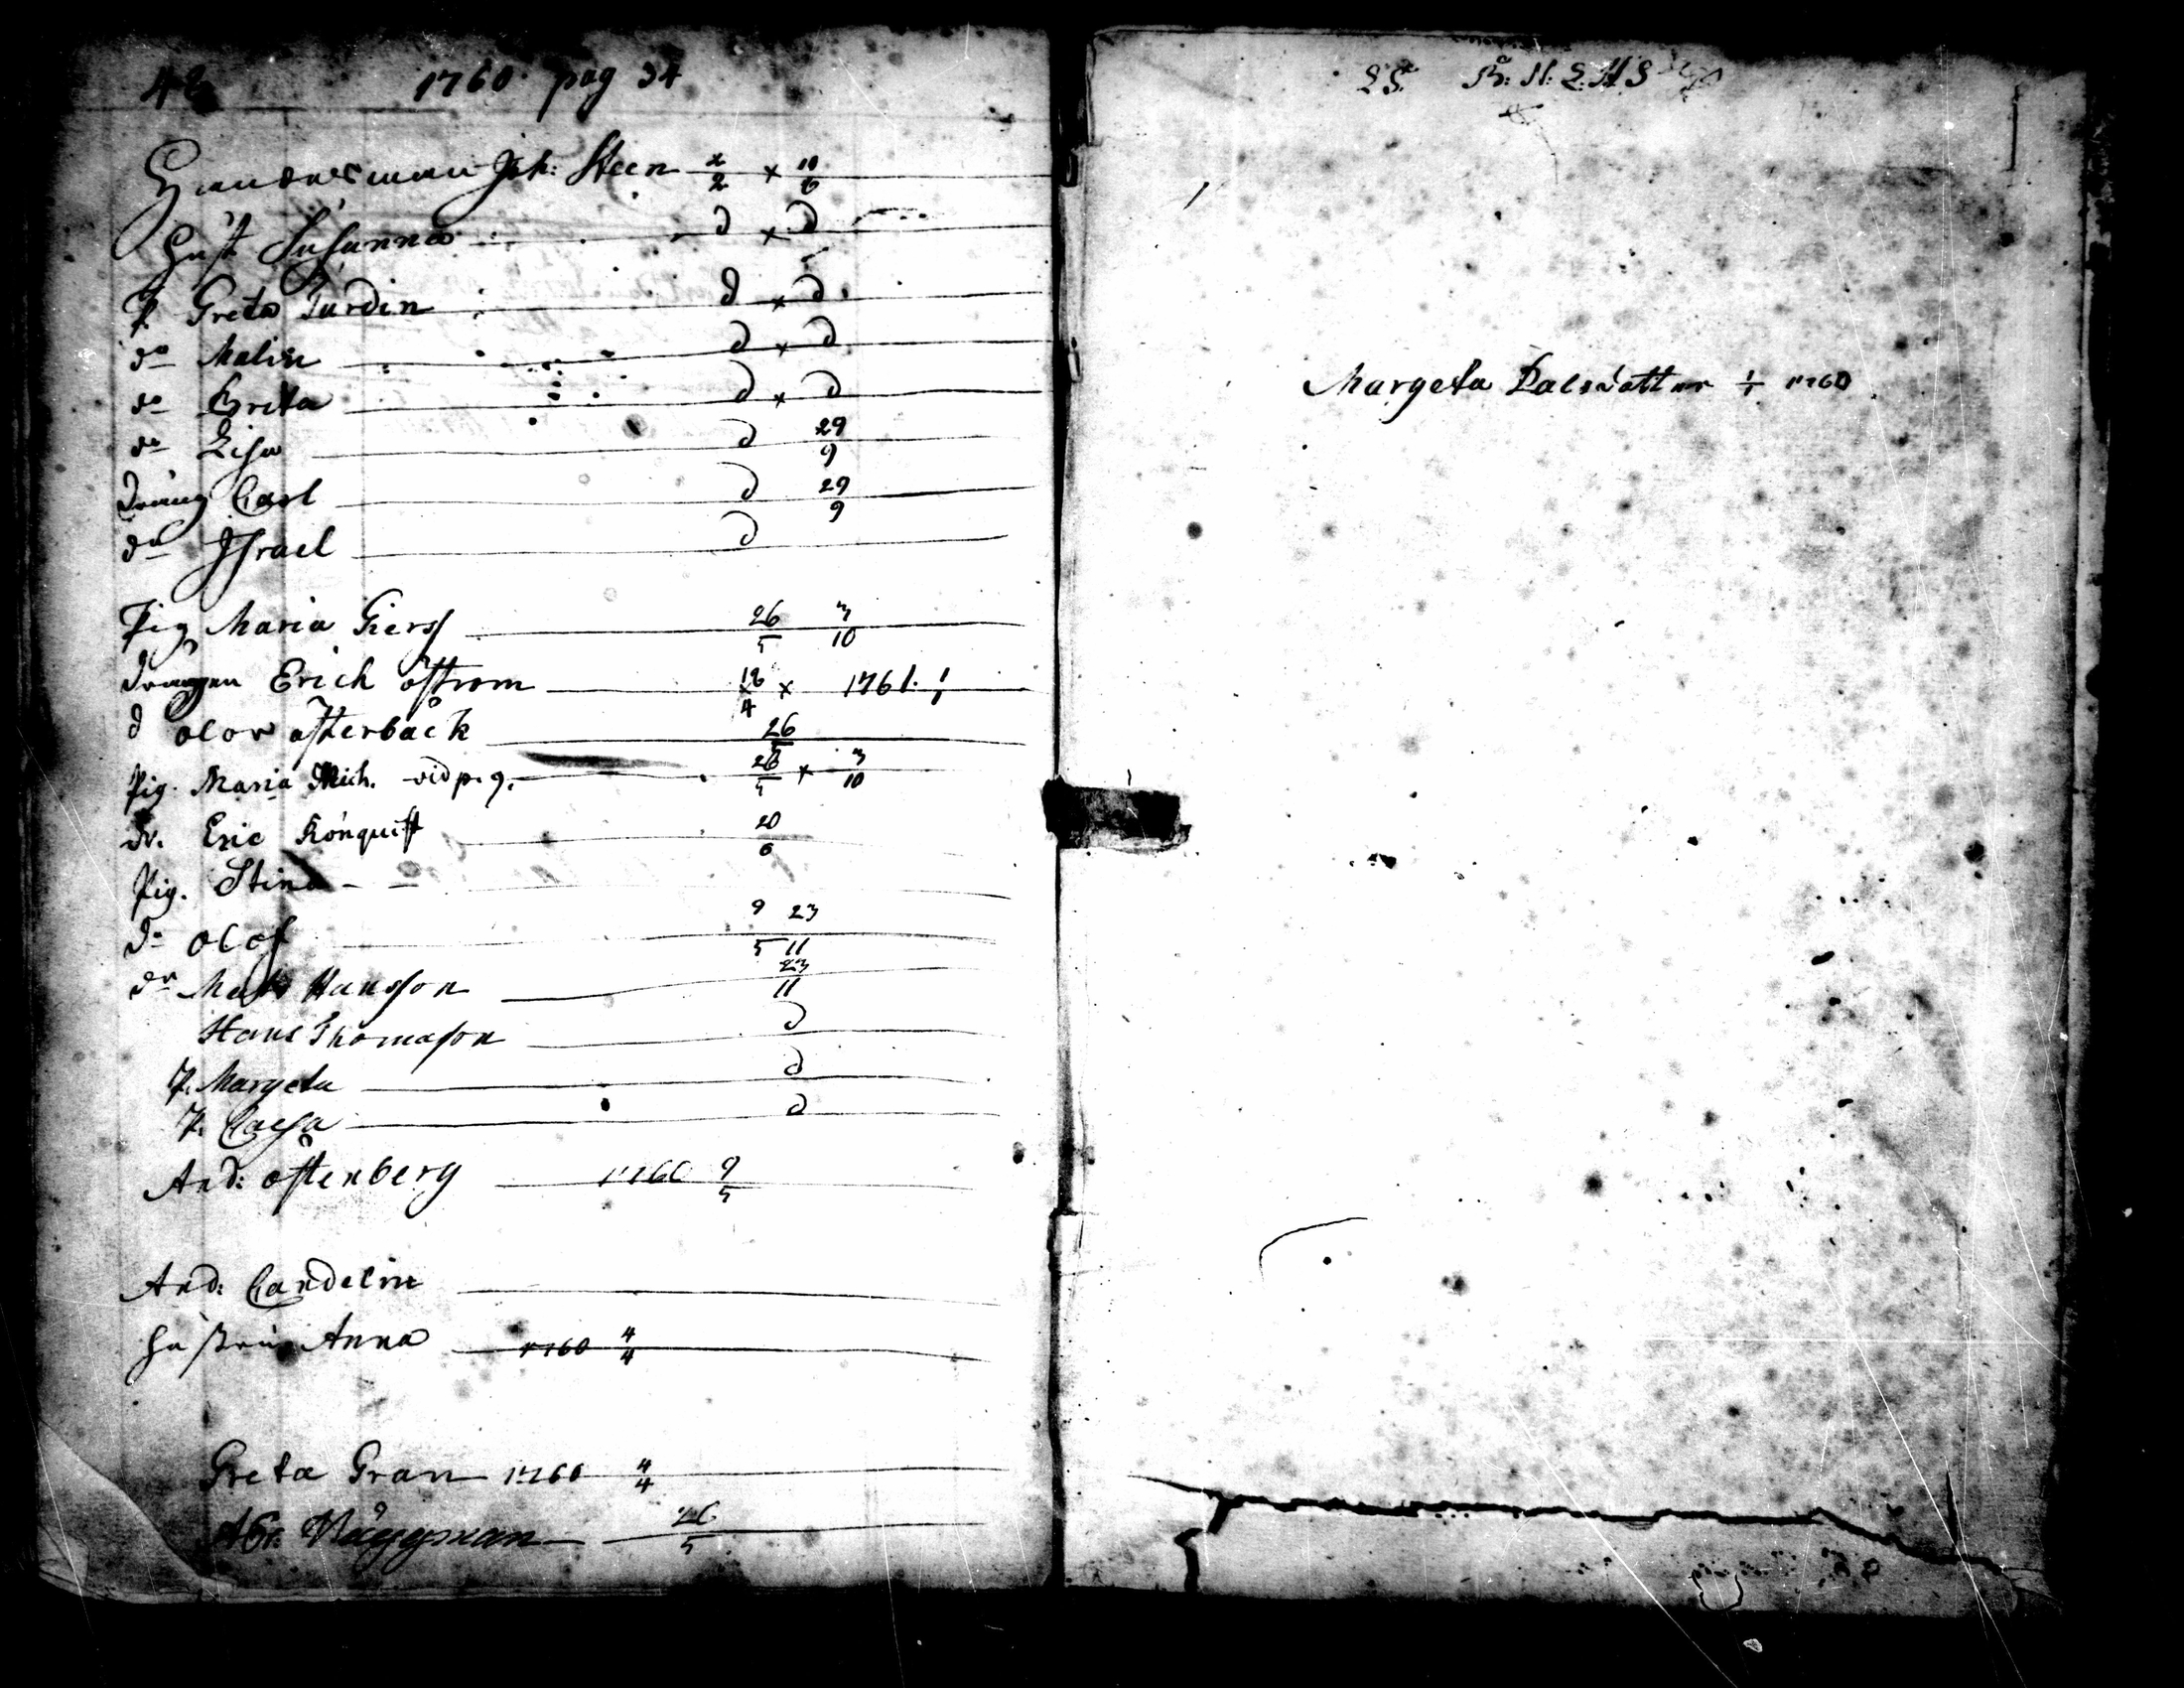 48 1760 pag 34
Handelsman Joh: Steen 2/2 x 10/6
Hust Susanna d x d
P. Greta Turdin d x d
do Malin d x d
do Brita d x d
do Lisa d 29/9
Dräng Carl d 29/9
do Israel d
Pig Maria Giers 26/5 3/10
Drängen Erich öström 16/4 x 1761. 1/1
d olov österback 26/5
Pig. Maria Mich. vid p. g. 26/5 x 3/10
Dr. Eric Rönquist 20/6
Pig. Stina
Dr olof 9/5 23/11
dr Mats Hansson 23/11
Hans Thomasson d
P. Margeta d
P. Caisa d
And: östenberg 1760 9/5
And: Candelin
Hustru Anna 1760 4/4
Greta Gran 1760 4/4
Abr. Häggman 26/5
Margeta Dalsdotter 1/1 1760